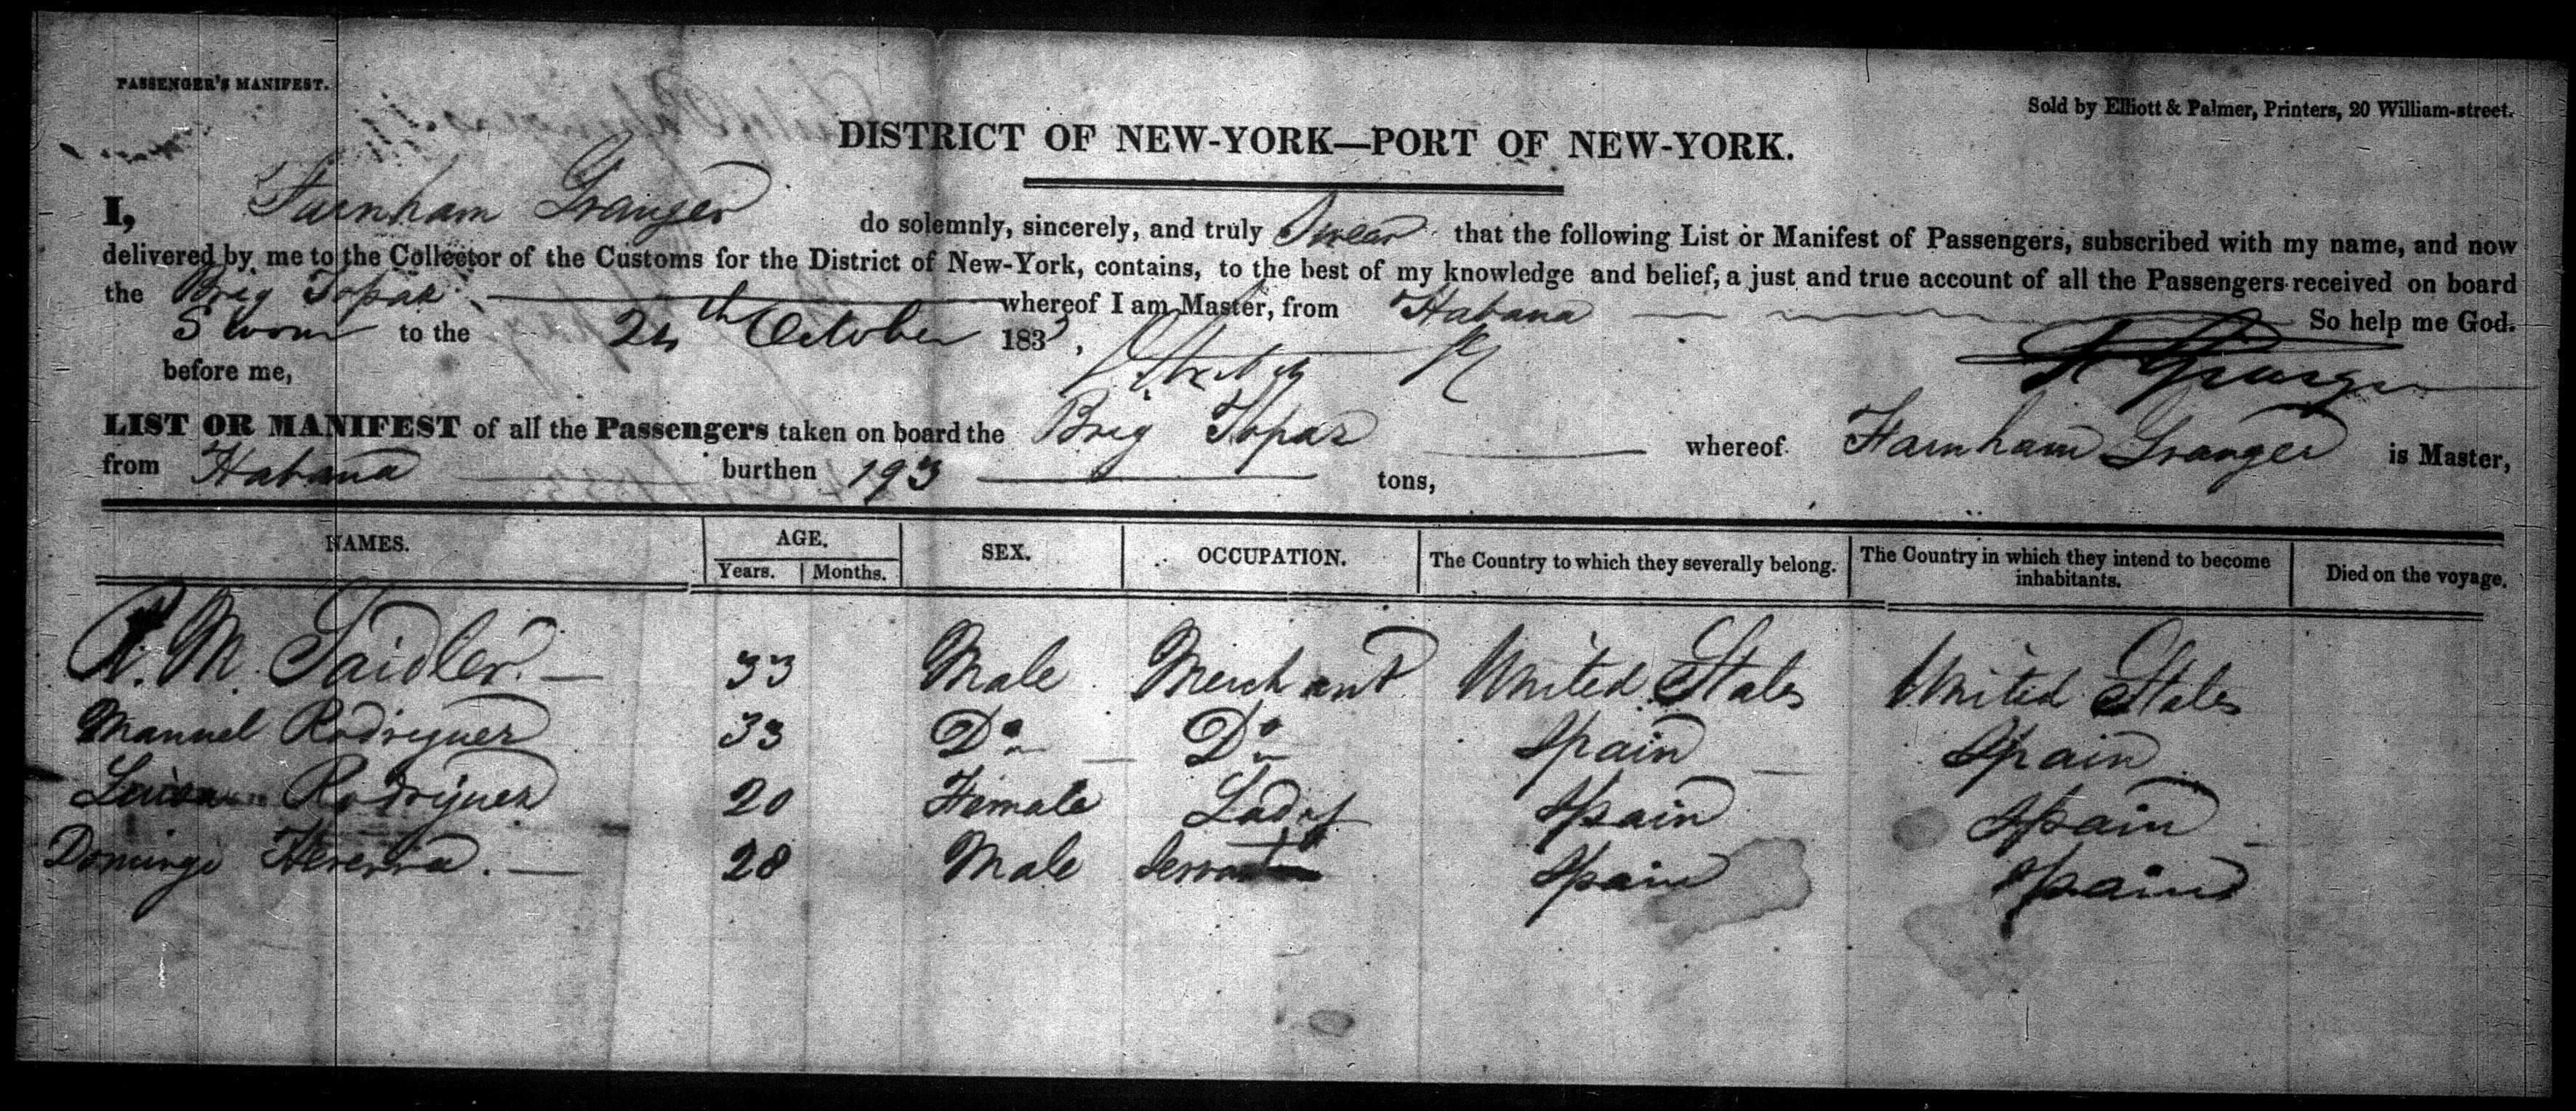 PASSENGER'S MANIFEST.
Sold by Elliott & Palmer, Printers, 20 William-street.
DISTRICT OF NEW-YORK—PORT OF NEW-YORK.
I, Farnham Granger do solemnly, sincerely, and truly Swear that the following List or Manifest of Passengers, subscribed with my name, and now
delivered by me to the Collector of the Customs for the District of New-York, contains, to the best of my knowledge and belief, a just and true account of all the Passengers received on board
the Brig Topaz whereof I am Master, from Habana So help me God.
Sworn to the 24th October 183
before me,
F Granger
LIST OR MANIFEST of all the Passengers taken on board the Brig Topaz whereof Farnham Granger is Master,
from Habana burthen 193 tons,
NAMES. AGE. SEX. OCCUPATION. The Country to which they severally belong. The Country in which they intend to become inhabitants. Died on the voyage.
Years. Months.
M. Saidler. 33 Male Merchant United States United States
Manuel Rodriguez 33 Do Do Spain Spain
Rodriguez 20 Female Lady Spain Spain
Domingo Hererra. 28 Male Servant Spain Spain